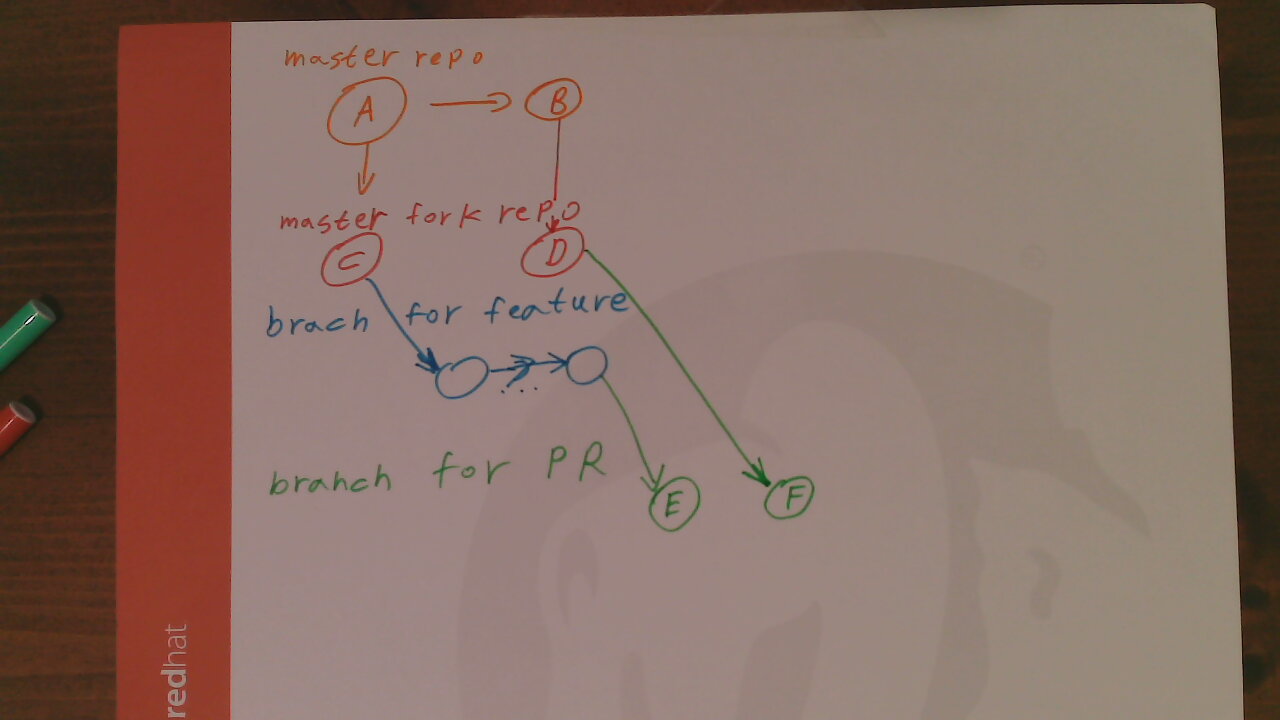 master repo
A B
master fork repo
C D
brach for feature
?
...
branch for PR
E F
redhat